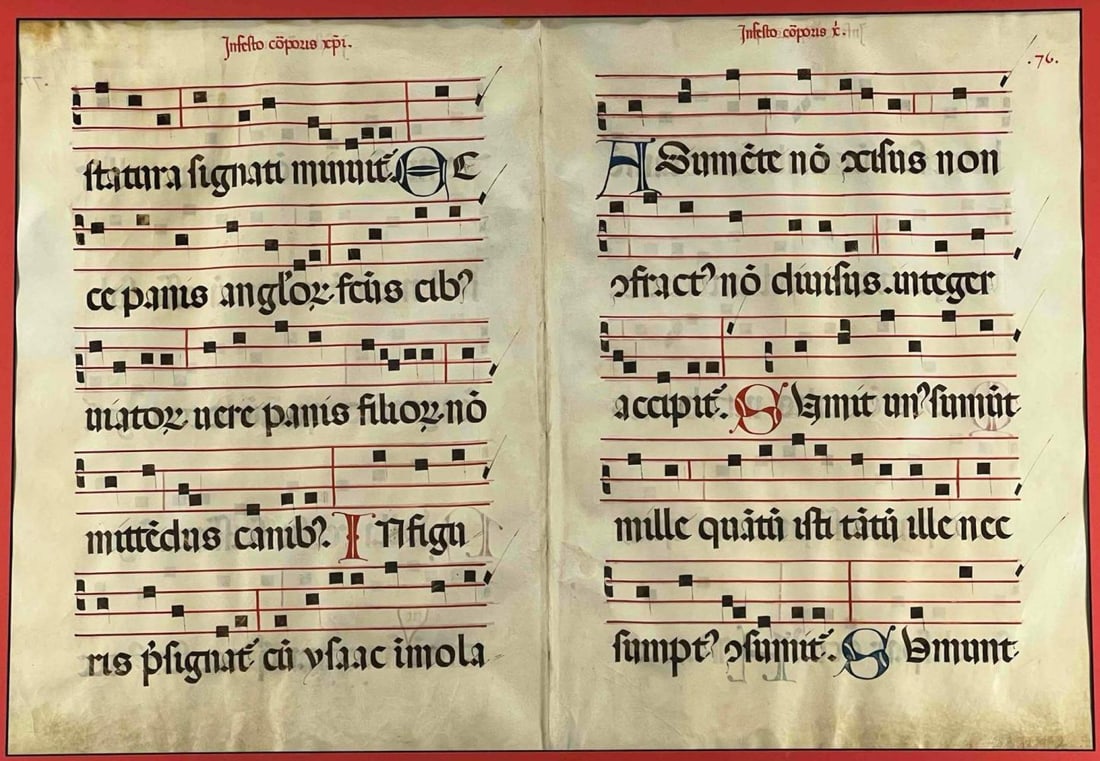 Infesto cōporis xp̄i.
statura signati minuit̃. E C
ce panis angl'oꝝ. fc̄us cib᾽
uiatoꝝ uere panis filioꝝ. nō
mittēdus canib᾽. I N figu
ris p̄signat̃ cū ysaac īmola
Infesto cōporis x̄.
.76.
A Sumēte nō ↄcisus non
ↄfract᾽ nō diuisus. integer
accipit̃. S Vmit un᾽ sumūt
mille quātū isti tātū ille nec
sumpt᾽ ↄsumit̃. S Vmunt